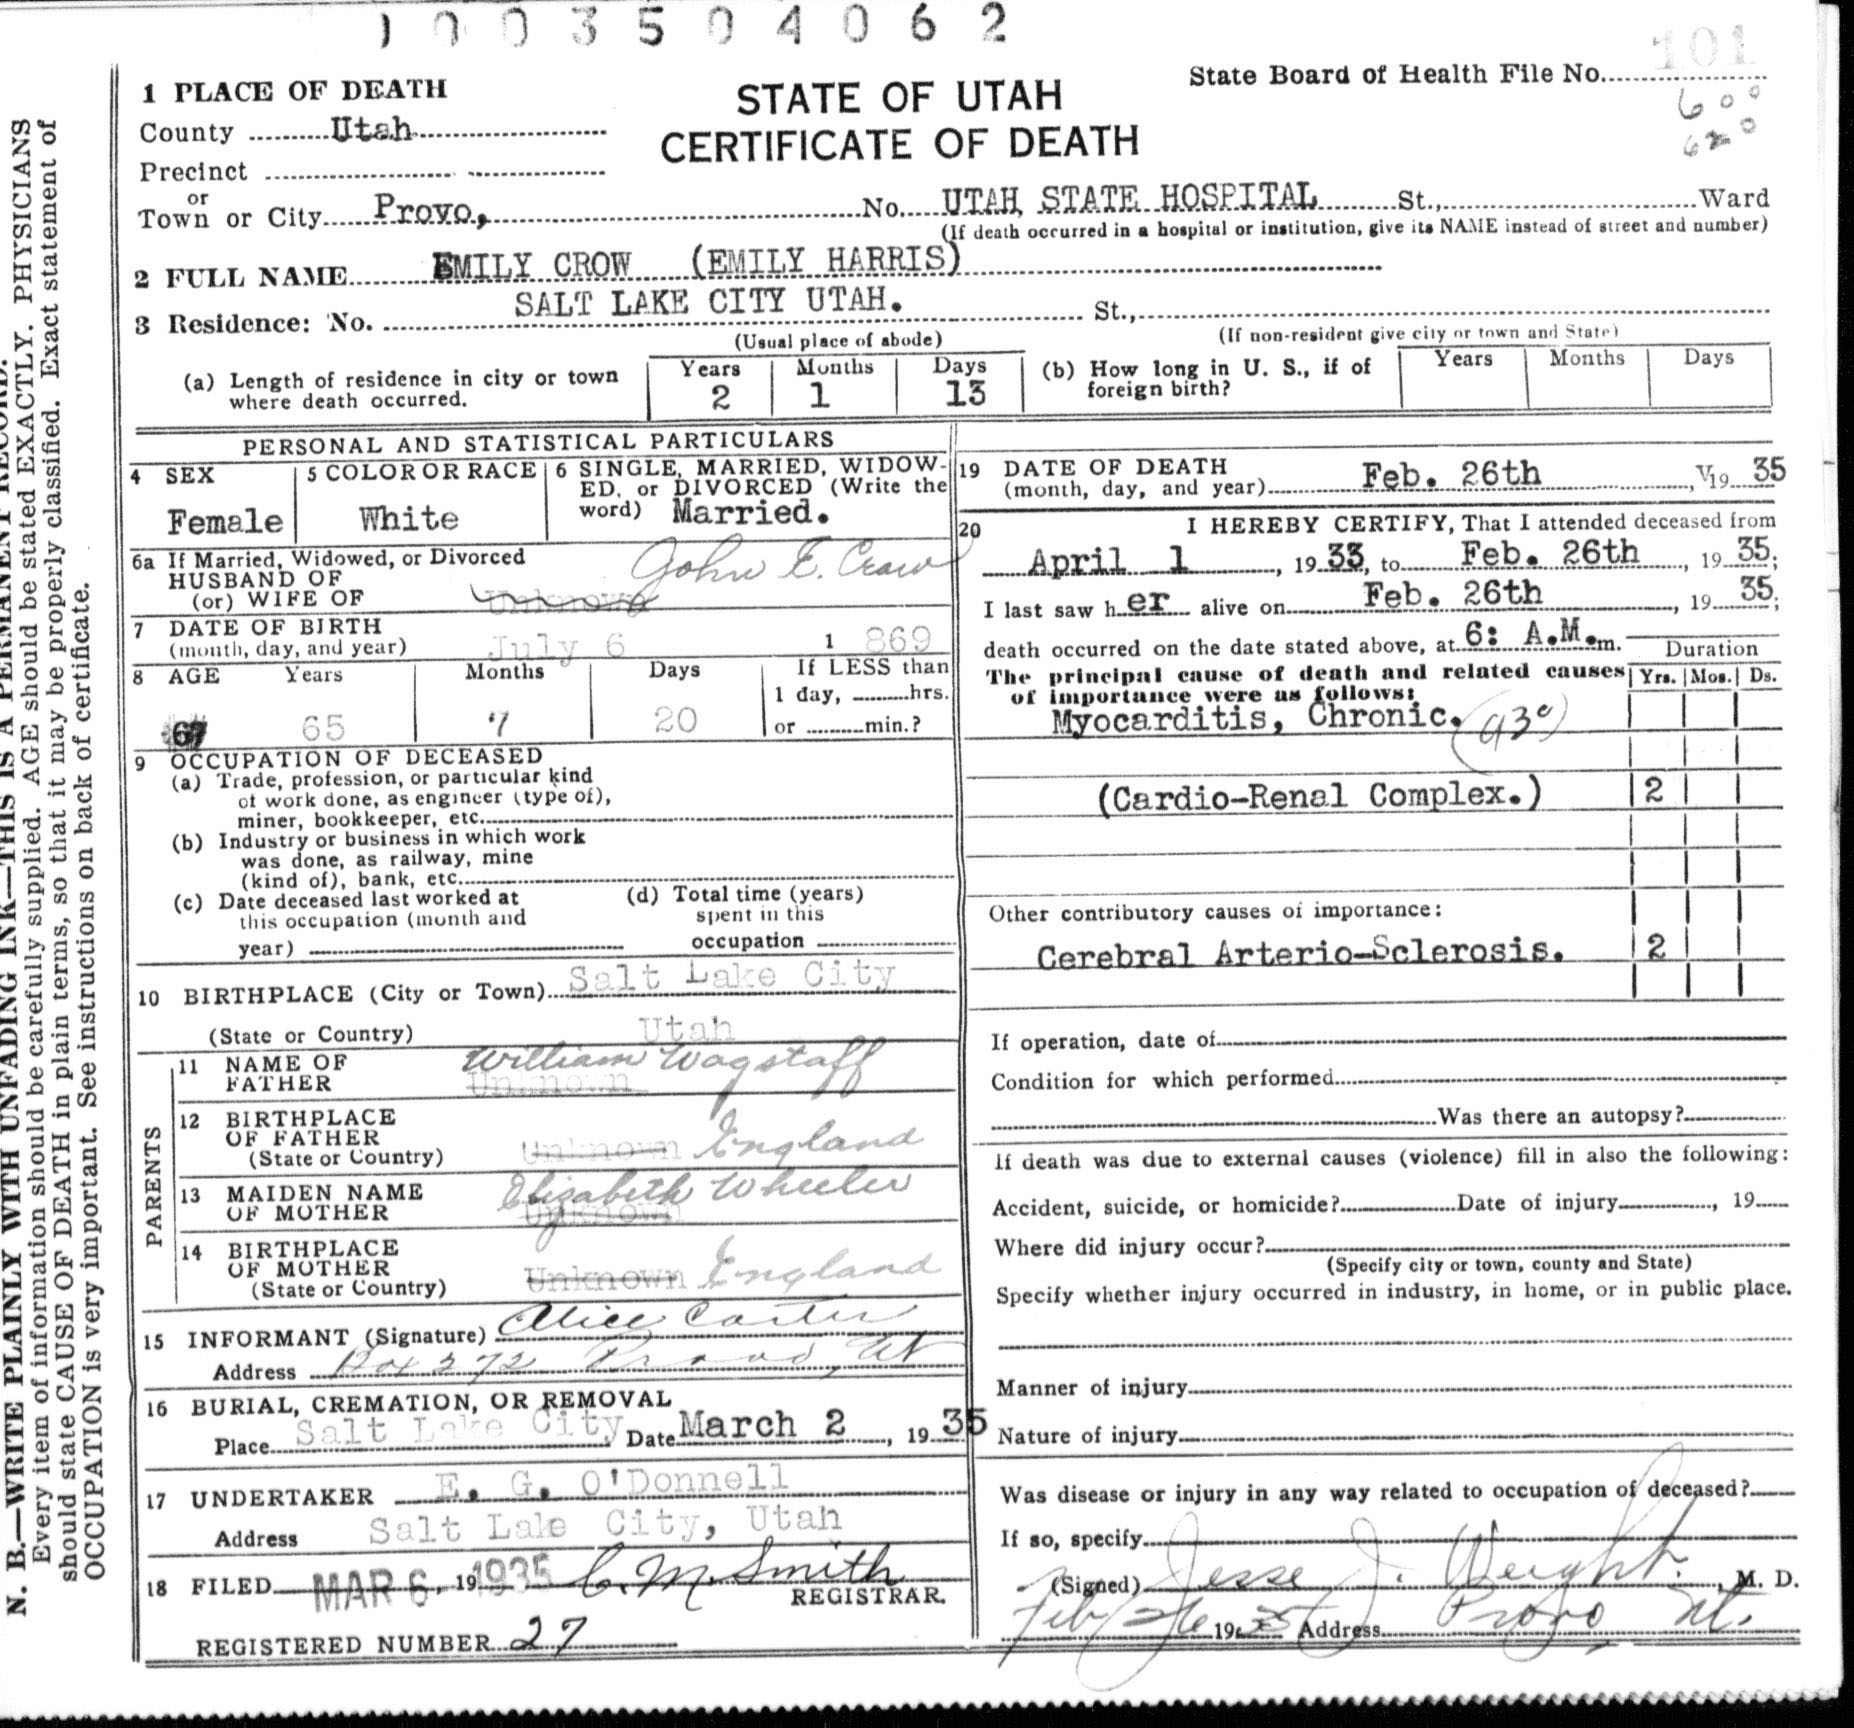 1003504062
1 PLACE OF DEATH
County Utah
Precinct
or
Town or City Provo,
STATE OF UTAH
CERTIFICATE OF DEATH
State Board of Health File No. 101
600
620
No. UTAH STATE HOSPITAL St., Ward
(If death occurred in a hospital or institution, give its NAME instead of street and number)
2 FULL NAME EMILY CROW (EMILY HARRIS)
3 Residence: No. SALT LAKE CITY UTAH. St.,
(Usual place of abode) (If non-resident give city or town and State)
(a) Length of residence in city or town where death occurred. Years 2 Months 1 Days 13
(b) How long in U. S., if of foreign birth? Years Months Days
PERSONAL AND STATISTICAL PARTICULARS
4 SEX
Female
5 COLOR OR RACE
White
6 SINGLE, MARRIED, WIDOW-
ED, or DIVORCED (Write the
word) Married.
6a If Married, Widowed, or Divorced
HUSBAND OF
(or) WIFE OF Unknown John E. Crow
7 DATE OF BIRTH
(month, day, and year) July 6 1869
8 AGE Years Months Days If LESS than
1 day, hrs.
67 65 7 20 or min.?
9 OCCUPATION OF DECEASED
(a) Trade, profession, or particular kind
of work done, as engineer (type of),
miner, bookkeeper, etc.
(b) Industry or business in which work
was done, as railway, mine
(kind of), bank, etc.
(c) Date deceased last worked at
this occupation (month and
year)
(d) Total time (years)
spent in this
occupation
10 BIRTHPLACE (City or Town) Salt Lake City
(State or Country) Utah
PARENTS
11 NAME OF
FATHER Unknown William Wagstaff
12 BIRTHPLACE
OF FATHER
(State or Country) Unknown England
13 MAIDEN NAME
OF MOTHER Unknown Elizabeth Wheeler
14 BIRTHPLACE
OF MOTHER
(State or Country) Unknown England
15 INFORMANT (Signature) Alice Carter
Address Box 272 Provo, Ut
16 BURIAL, CREMATION, OR REMOVAL
Place Salt Lake City Date March 2, 1935
17 UNDERTAKER E. G. O'Donnell
Address Salt Lake City, Utah
18 FILED MAR 6, 19 1935 C. M. Smith
REGISTRAR.
REGISTERED NUMBER 27
19 DATE OF DEATH
(month, day, and year) Feb. 26th, 19 35
20 I HEREBY CERTIFY, That I attended deceased from
April 1, 1933, to Feb. 26th, 19 35;
I last saw h er alive on Feb. 26th, 19 35;
death occurred on the date stated above, at 6: A.M. m.
Duration
The principal cause of death and related causes
of importance were as follows:
Yrs. Mos. Ds.
Myocarditis, Chronic. (93c)
(Cardio-Renal Complex.) 2
Other contributory causes of importance:
Cerebral Arterio-Sclerosis. 2
If operation, date of
Condition for which performed
Was there an autopsy?
If death was due to external causes (violence) fill in also the following:
Accident, suicide, or homicide? Date of injury, 19
Where did injury occur?
(Specify city or town, county and State)
Specify whether injury occurred in industry, in home, or in public place.
Manner of injury
Nature of injury
Was disease or injury in any way related to occupation of deceased?
If so, specify
(Signed) Jesse J. Weight, M. D.
Feb 26 1935 Address Provo, Ut.
N. B.—WRITE PLAINLY WITH UNFADING INK—THIS IS A PERMANENT RECORD.
Every item of information should be carefully supplied. AGE should be stated EXACTLY. PHYSICIANS
should state CAUSE OF DEATH in plain terms, so that it may be properly classified. Exact statement of
OCCUPATION is very important. See instructions on back of certificate.